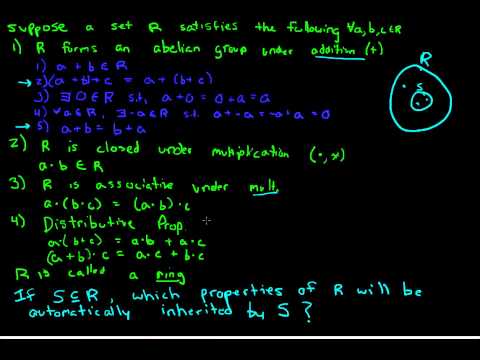 Suppose a set R satisfies the following ∀a,b,c∈R
1) R forms an abelian group under addition (+)
1) a+b∈R
→ 2) (a+b)+c = a+(b+c)
3) ∃ 0∈R s.t. a+0=0+a=a
4) ∀a∈R, ∃-a∈R s.t. a+-a=-a+a=0
→ 5) a+b = b+a
2) R is closed under multiplication (·,×)
a·b∈R
3) R is associative under mult.
a·(b·c) = (a·b)·c
4) Distributive Prop.
a·(b+c) = a·b + a·c
(a+b)·c = a·c + b·c
R is called a ring
If S⊆R, which properties of R will be
automatically inherited by S?
R
S